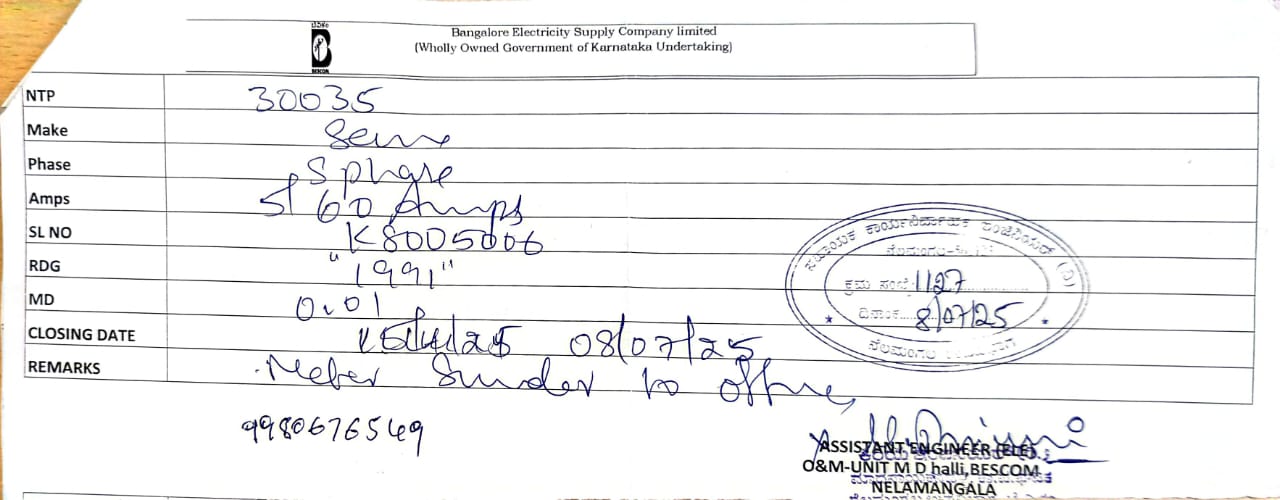 ಬೆವಿಕಂ
BESCOM
Bangalore Electricity Supply Company limited
(Wholly Owned Government of Karnataka Undertaking)
NTP 30035
Make
Phase S phase
Amps 5/ 60 Amps
SL NO K8005006
RDG "1991"
MD 0.01
CLOSING DATE 08/07/25
REMARKS Meter to office
ಸಹಾಯಕ ಕಾರ್ಯನಿರ್ವಾಹಕ ಇಂಜಿನಿಯರ್ (ವಿ)
ಕ್ರಮ ಸಂಖ್ಯೆ 1127
ದಿನಾಂಕ 8/07/25
9980676549
ASSISTANT ENGINEER (ELE),
O&M-UNIT M D halli,BESCOM
NELAMANGALA